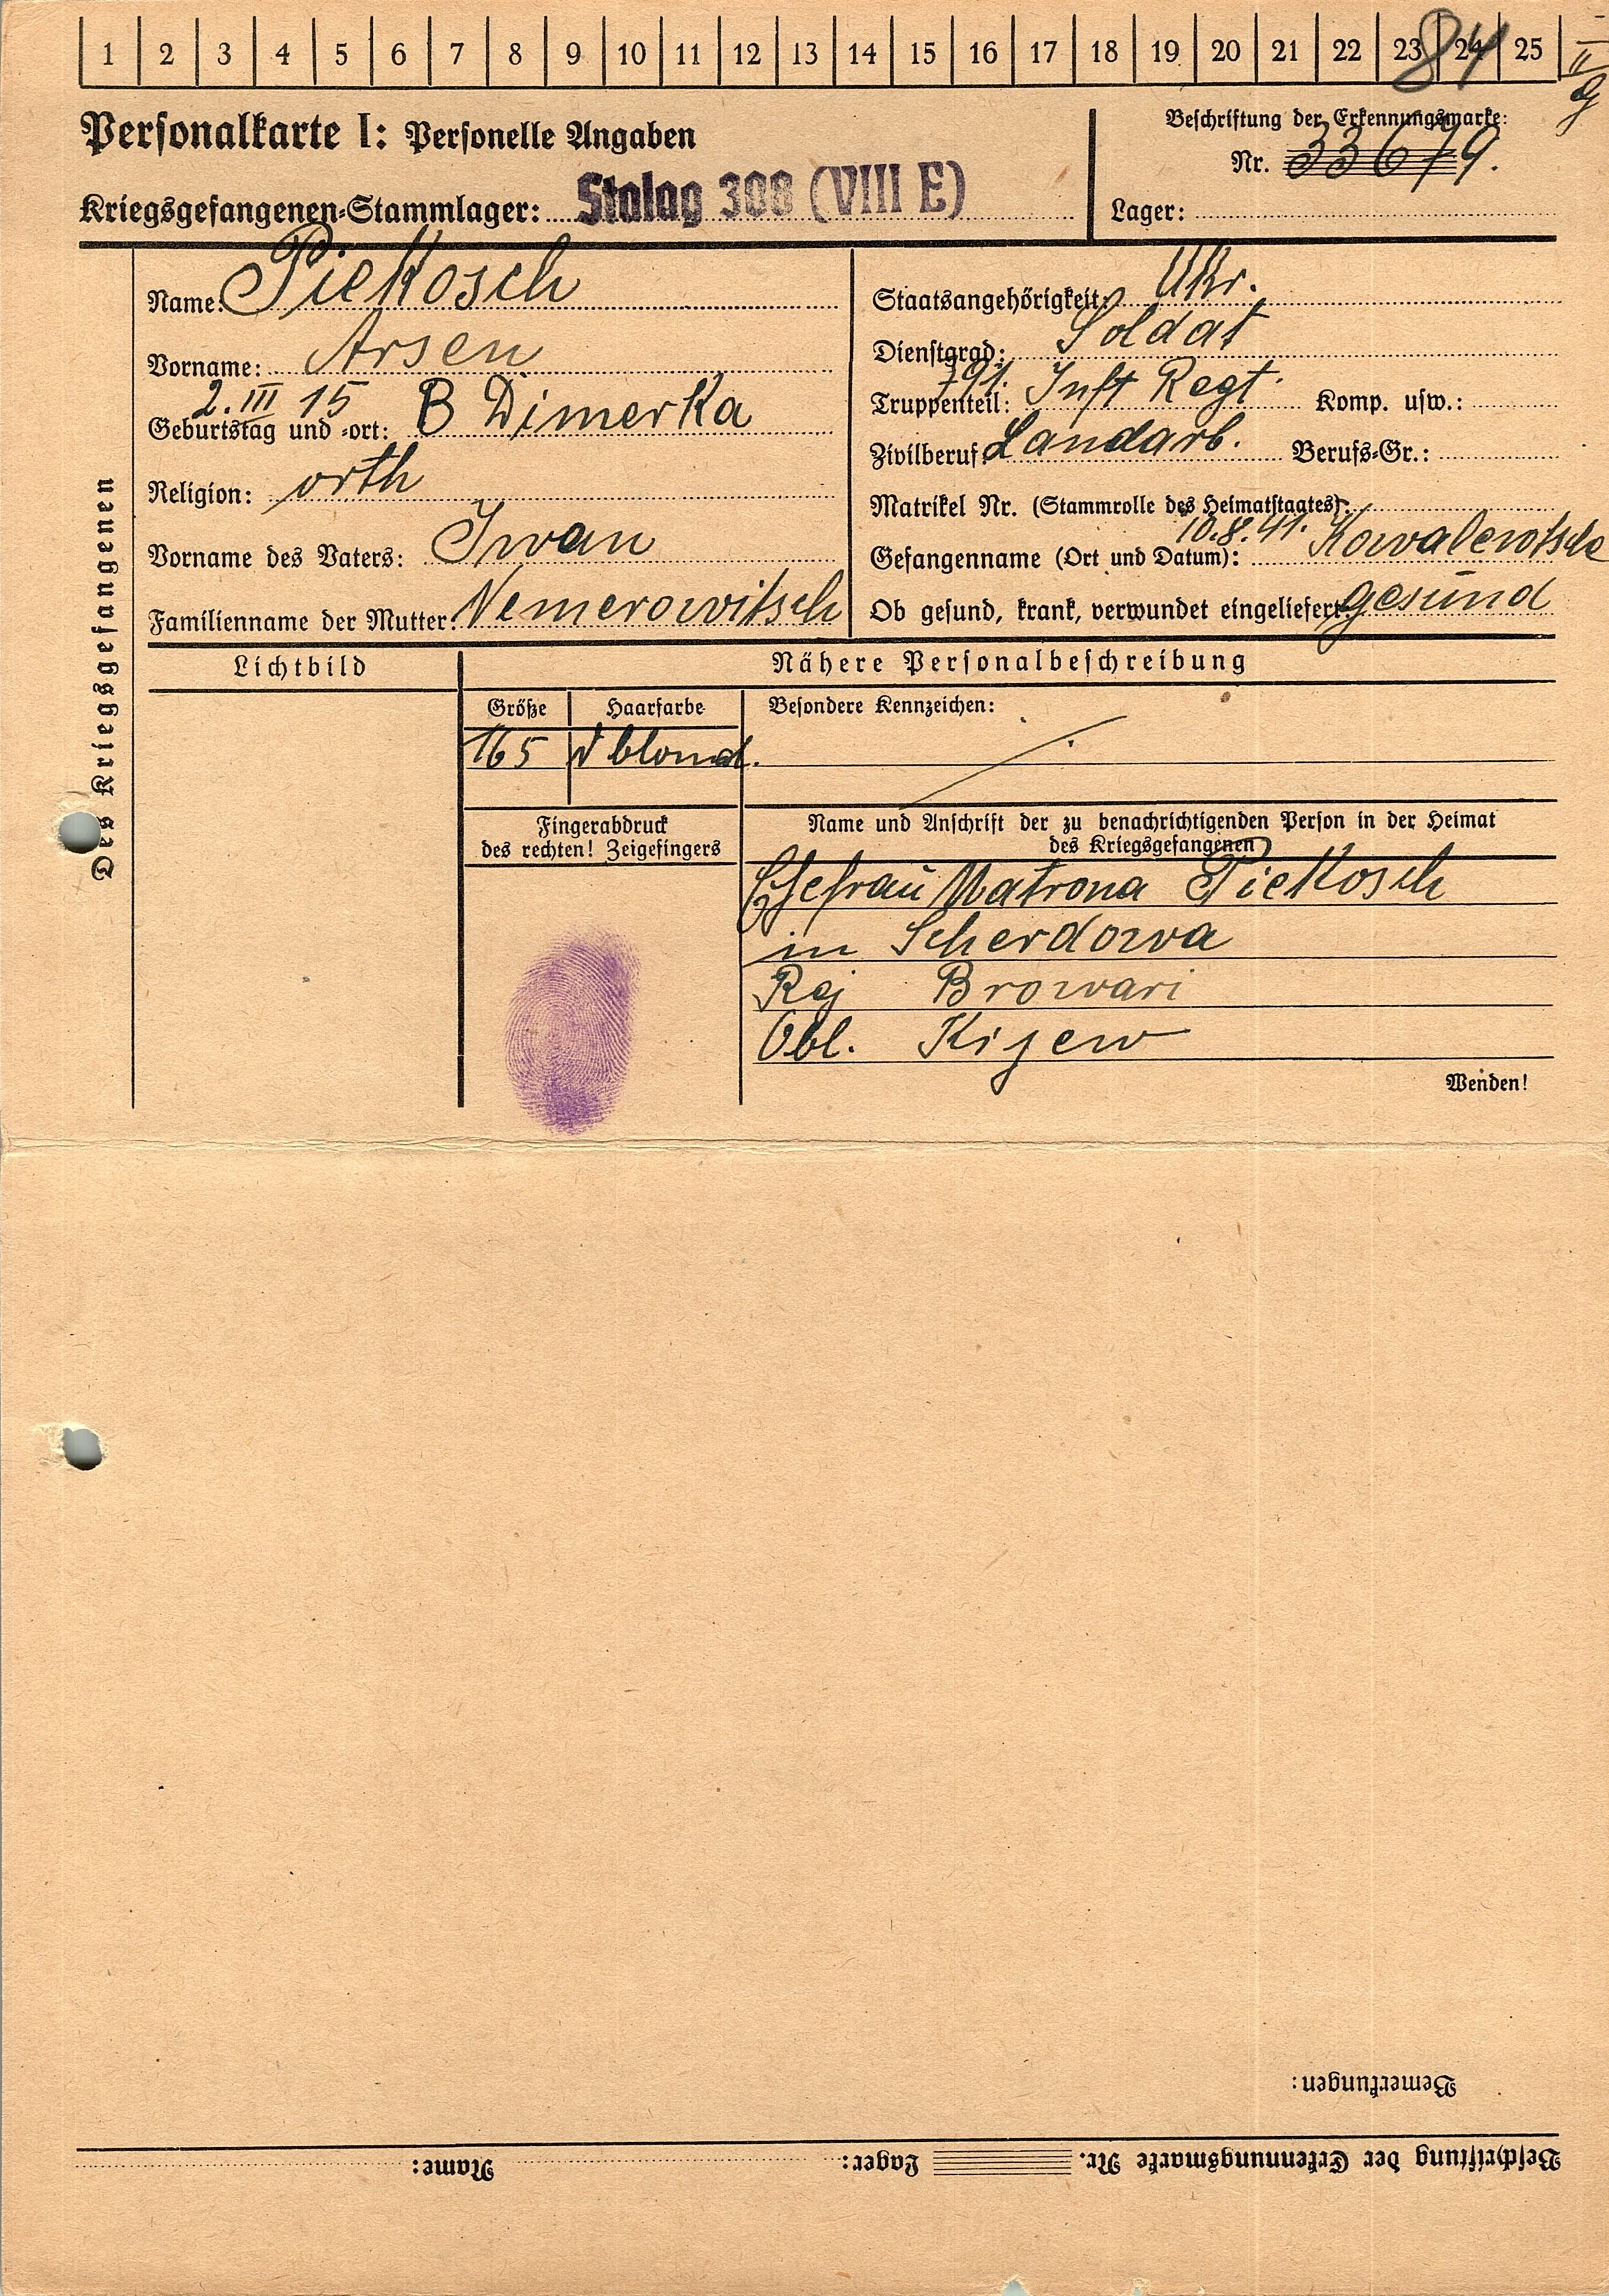 1 2 3 4 5 6 7 8 9 10 11 12 13 14 15 16 17 18 19 20 21 22 23 24 25
84
Personalkarte I: Personelle Angaben
Beschriftung der Erkennungsmarke:
Nr. 33679.
Kriegsgefangenen-Stammlager: Stalag 308 (VIII E)
Lager:
Des Kriegsgefangenen
Name: Piekosch
Vorname: Arsen
2. III 15
Geburtstag und -ort: B Dimerka
Religion: orth
Vorname des Vaters: Iwan
Familienname der Mutter: Nemerowitsch
Staatsangehörigkeit: Ukr.
Dienstgrad: Soldat
Truppenteil: 791. Inft Regt. Komp. usw.:
Zivilberuf: Landarb. Berufs-Gr.:
Matrikel Nr. (Stammrolle des Heimatstaates):
Gefangenname (Ort und Datum): 10.8.41. Kowalewtsche
Ob gesund, krank, verwundet eingeliefert: gesund
Lichtbild
Nähere Personalbeschreibung
Größe Haarfarbe Besondere Kennzeichen:
165 d blond.
Fingerabdruck
des rechten! Zeigefingers
Name und Anschrift der zu benachrichtigenden Person in der Heimat
des Kriegsgefangenen
Ehefrau Matrona Piekosch
in Scherdowa
Raj Browari
Obl. Kijew
Wenden!
Bemerkungen:
Beschriftung der Erkennungsmarke Nr. Lager: Name: